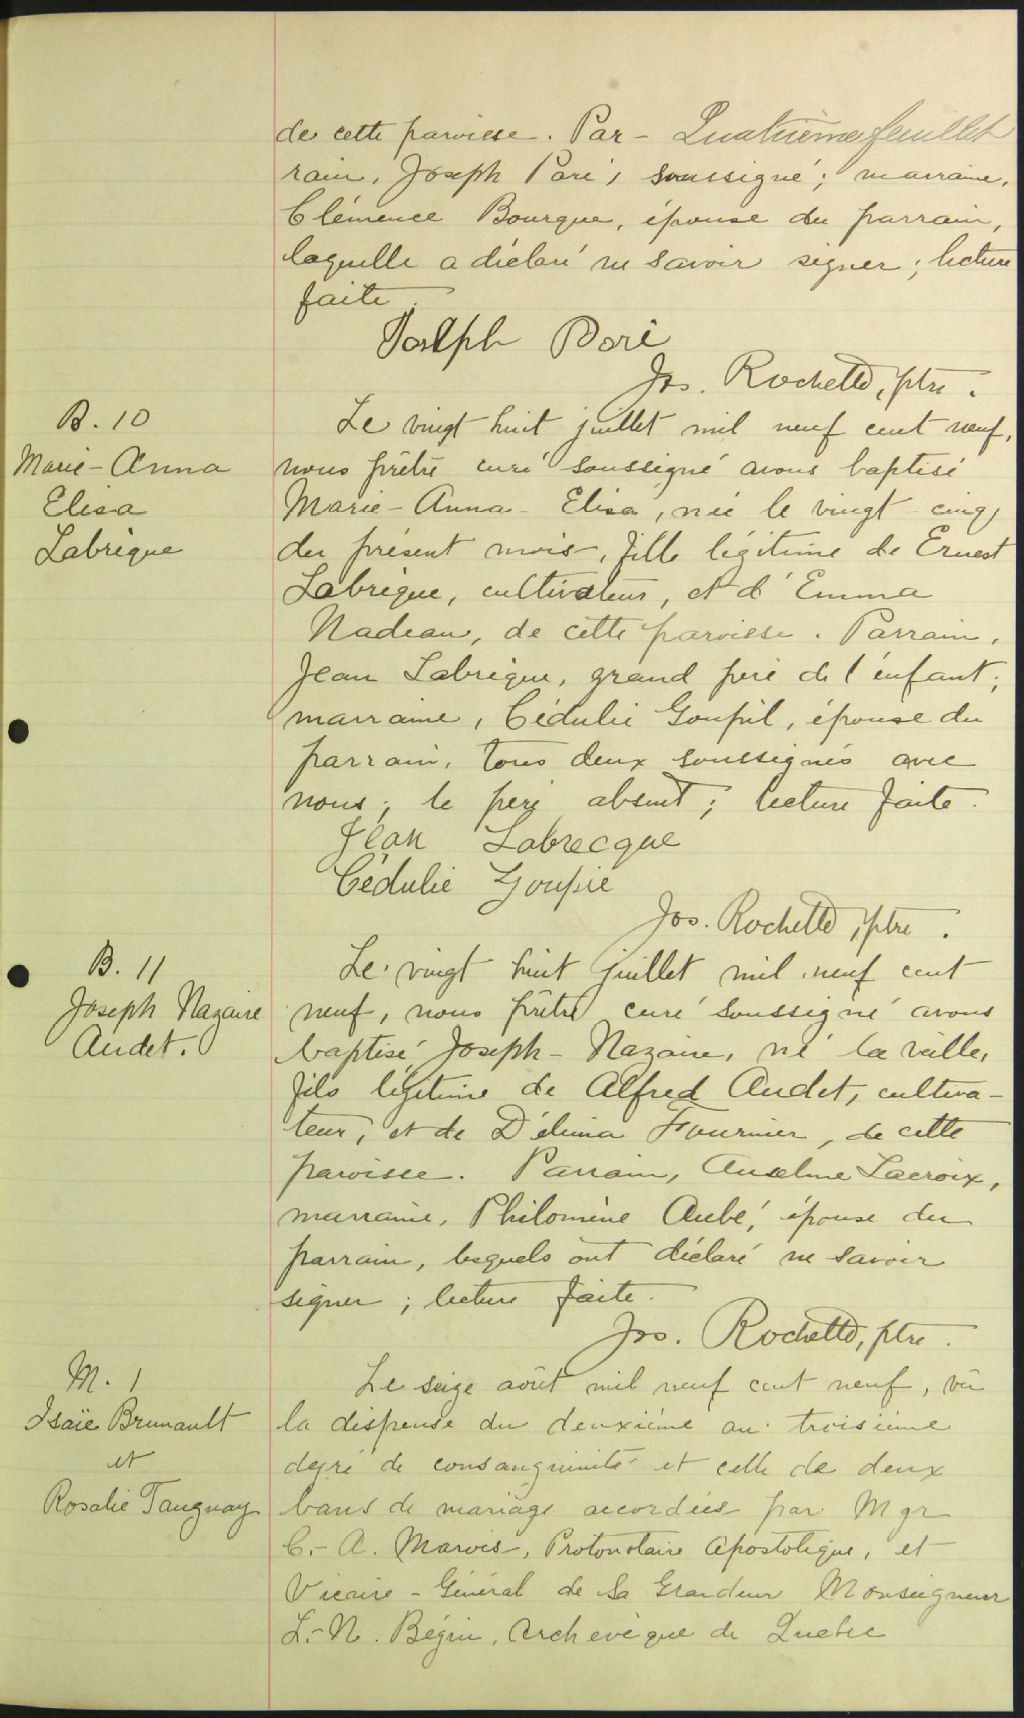 Quatrième feuillet
de cette paroisse. Par-
rain, Joseph Paré, soussigné; marraine,
Clémence Bourque, épouse du parrain,
laquelle a déclaré ne savoir signer; lecture
faite.
Joseph Paré
Jos. Rochette, ptre.
B. 10
Marie-Anna
Elisa
Labrèque
Le vingt huit juillet mil neuf cent neuf,
nous prêtre curé soussigné avons baptisé
Marie-Anna-Elisa, née le vingt-cinq
du présent mois, fille légitime de Ernest
Labrèque, cultivateur, et d'Emma
Nadeau, de cette paroisse. Parrain,
Jean Labrèque, grand père de l'enfant;
marraine, Cédulie Goupil, épouse du
parrain, tous deux soussignés avec
nous; le père absent; lecture faite.
Jean Labrecque
Cédulie Goupie
Jos. Rochette, ptre.
B. 11
Joseph Nazaire
Audet.
Le vingt huit juillet mil neuf cent
neuf, nous prêtre curé soussigné avons
baptisé Joseph-Nazaire, né la veille,
fils légitime de Alfred Audet, cultiva-
teur, et de Délima Fournier, de cette
paroisse. Parrain, Anselme Lacroix,
marraine, Philomène Aubé, épouse du
parrain, lesquels ont déclaré ne savoir
signer; lecture faite.
Jos. Rochette, ptre.
M. 1
Isaïe Brunault
et
Rosalie Tanguay
Le seize août mil neuf cent neuf, vu
la dispense du deuxième au troisième
degré de consanguinité et celle de deux
bans de mariage accordées par Mgr
C.-A. Marois, Protonotaire Apostolique, et
Vicaire-Général de Sa Grandeur Monseigneur
L.-N. Bégin, Archevêque de Québec